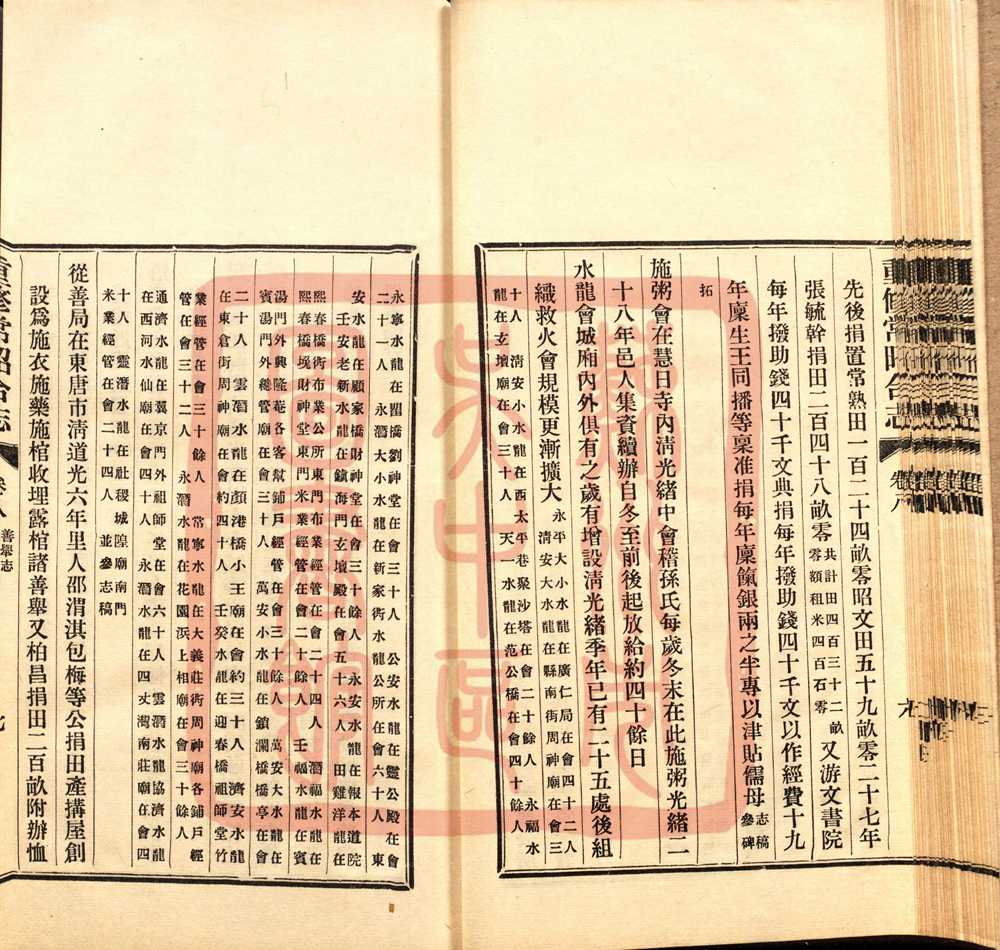 先後捐置常熟田一百二十四畝零昭文田五十九畝零二十七年
張毓幹捐田二百四十八畝零共計田四百三十二畝零額租米四百石零又游文書院
每年撥助錢四十千文典捐每年撥助錢四十千文以作經費十九
年廩生王同播等稟准捐每年廩餼銀兩之半專以津貼儒母志稿參碑
拓
施粥會在慧日寺內清光緒中會稽孫氏每歲冬末在此施粥光緒二
十八年邑人集資續辦自冬至前後起放給約四十餘日
水龍會城廂內外俱有之歲有增設清光緒季年已有二十五處後組
織救火會規模更漸擴大永平大小水龍在廣仁局在會四十二人清安大水龍在縣南街周神廟在會三
十人清安小水龍在西太平巷聚沙塔在會二十餘人永福水
龍在玄壇廟在會三十人天一水龍在范公橋在會四十餘人
永寧水龍在閣橋劉神堂在會三十人公安水龍在靈公殿在會
二十一人永濟大小水龍在新家街水龍公所在會六十人東
安水龍在顧家橋財神堂在會三十餘人永安水龍在報本道院
壬安老新水龍在鎮海門玄壇殿在會五十六人田雞洋龍在
熙春橋街布業公所東門布業經管在會二十四人潤福水龍在
熙春橋境財神堂東門米業經管在會二十餘人壬福水龍在賓
湯門外興隆菴各客幫鋪戶經管在會三十餘人萬安大水龍在
賓湯門外總管廟在會三十人萬安小水龍在鎖瀾橋橋亭在會
二十人雲濟水龍在顏港橋小王廟在會約三十八人濟安水龍
在東倉街周神廟在會約四十人壬癸水龍在迎春橋祖師堂竹
業經管在會三十餘人常寧水龍在大義莊街周神廟各鋪戶經
管在會三十二人永濟水龍在花園浜上相廟在會三十餘人
通濟水龍在翼京門外祖師堂在會六十人雲濟水龍協濟水龍
在西河水仙廟在會四十人永濟水龍在四丈灣南莊廟在會四
十人靈濟水龍在社稷城隍廟南門
米業經管在會二十四人並參志稿
從善局在東唐市清道光六年里人邵渭淇包梅等公捐田產搆屋創
設爲施衣施藥施棺收埋露棺諸善舉又柏昌捐田二百畝附辦恤
重修常昭合志
卷八
善舉志
九